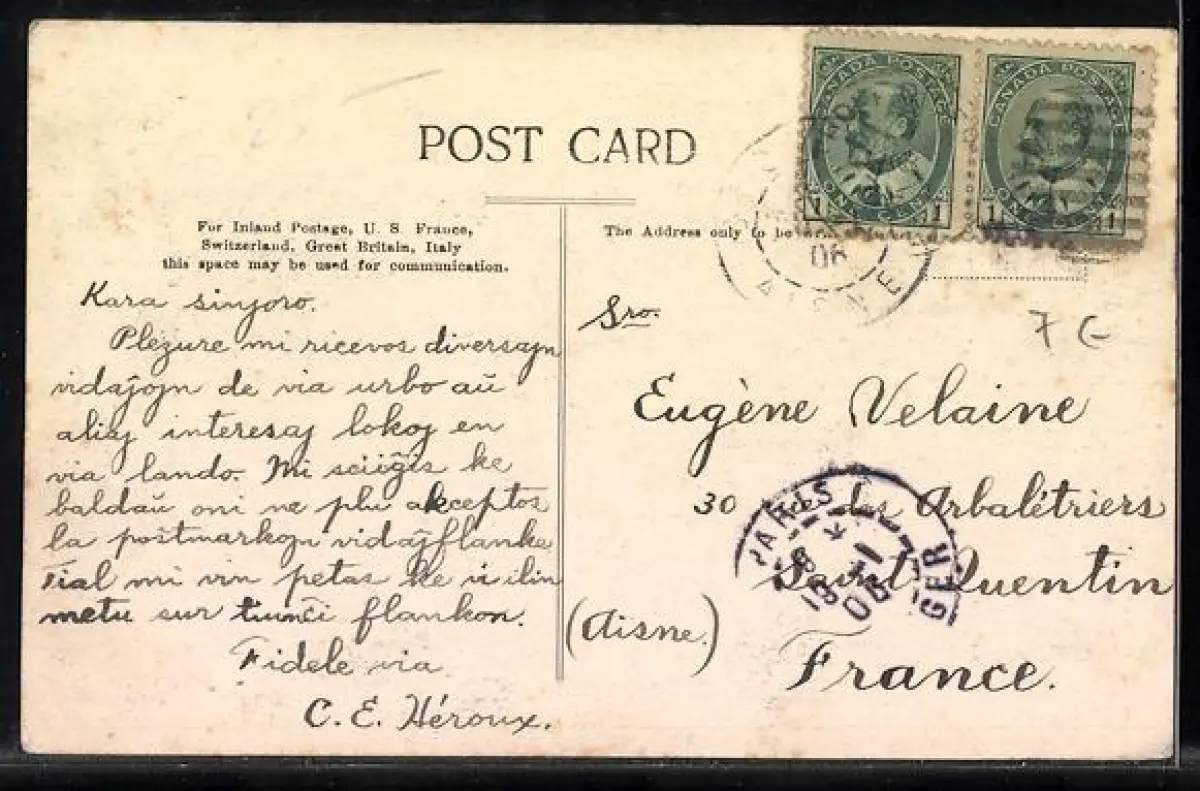 POST CARD
For Inland Postage, U. S. France,
Switzerland, Great Britain, Italy
this space may be used for communication.
The Address only to be
CANADA POSTAGE
ONE CENT
1 1
CANADA POSTAGE
1 1
06
AISNE
Kara sinjoro.
Plezure mi ricevos diversajn
vidaĵojn de via urbo aŭ
aliaj interesaj lokoj en
via lando. Mi sciiĝis ke
baldaŭ oni ne plu akceptos
la poŝtmarkojn vidaĵflanke
Tial mi vin petas ke vi ilin
metu sur tiun ĉi flankon.
Fidele via
C. E. Héroux.
7 G
Sro.
Eugène Velaine
30 des Arbalétriers
Saint Quentin
(Aisne.)
France.
PARIS
06